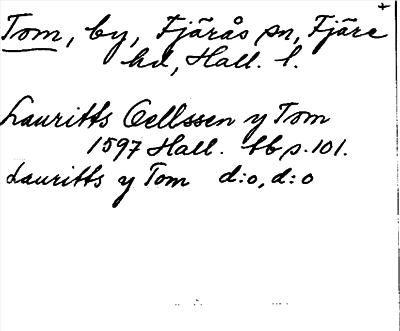 +
Tom, by, Fjärås sn, Fjäre
hd, Hall. l.
Lauritts Oellssen y Tom
1597 Hall. bb p. 101.
Lauritts y Tom d:o, d:o